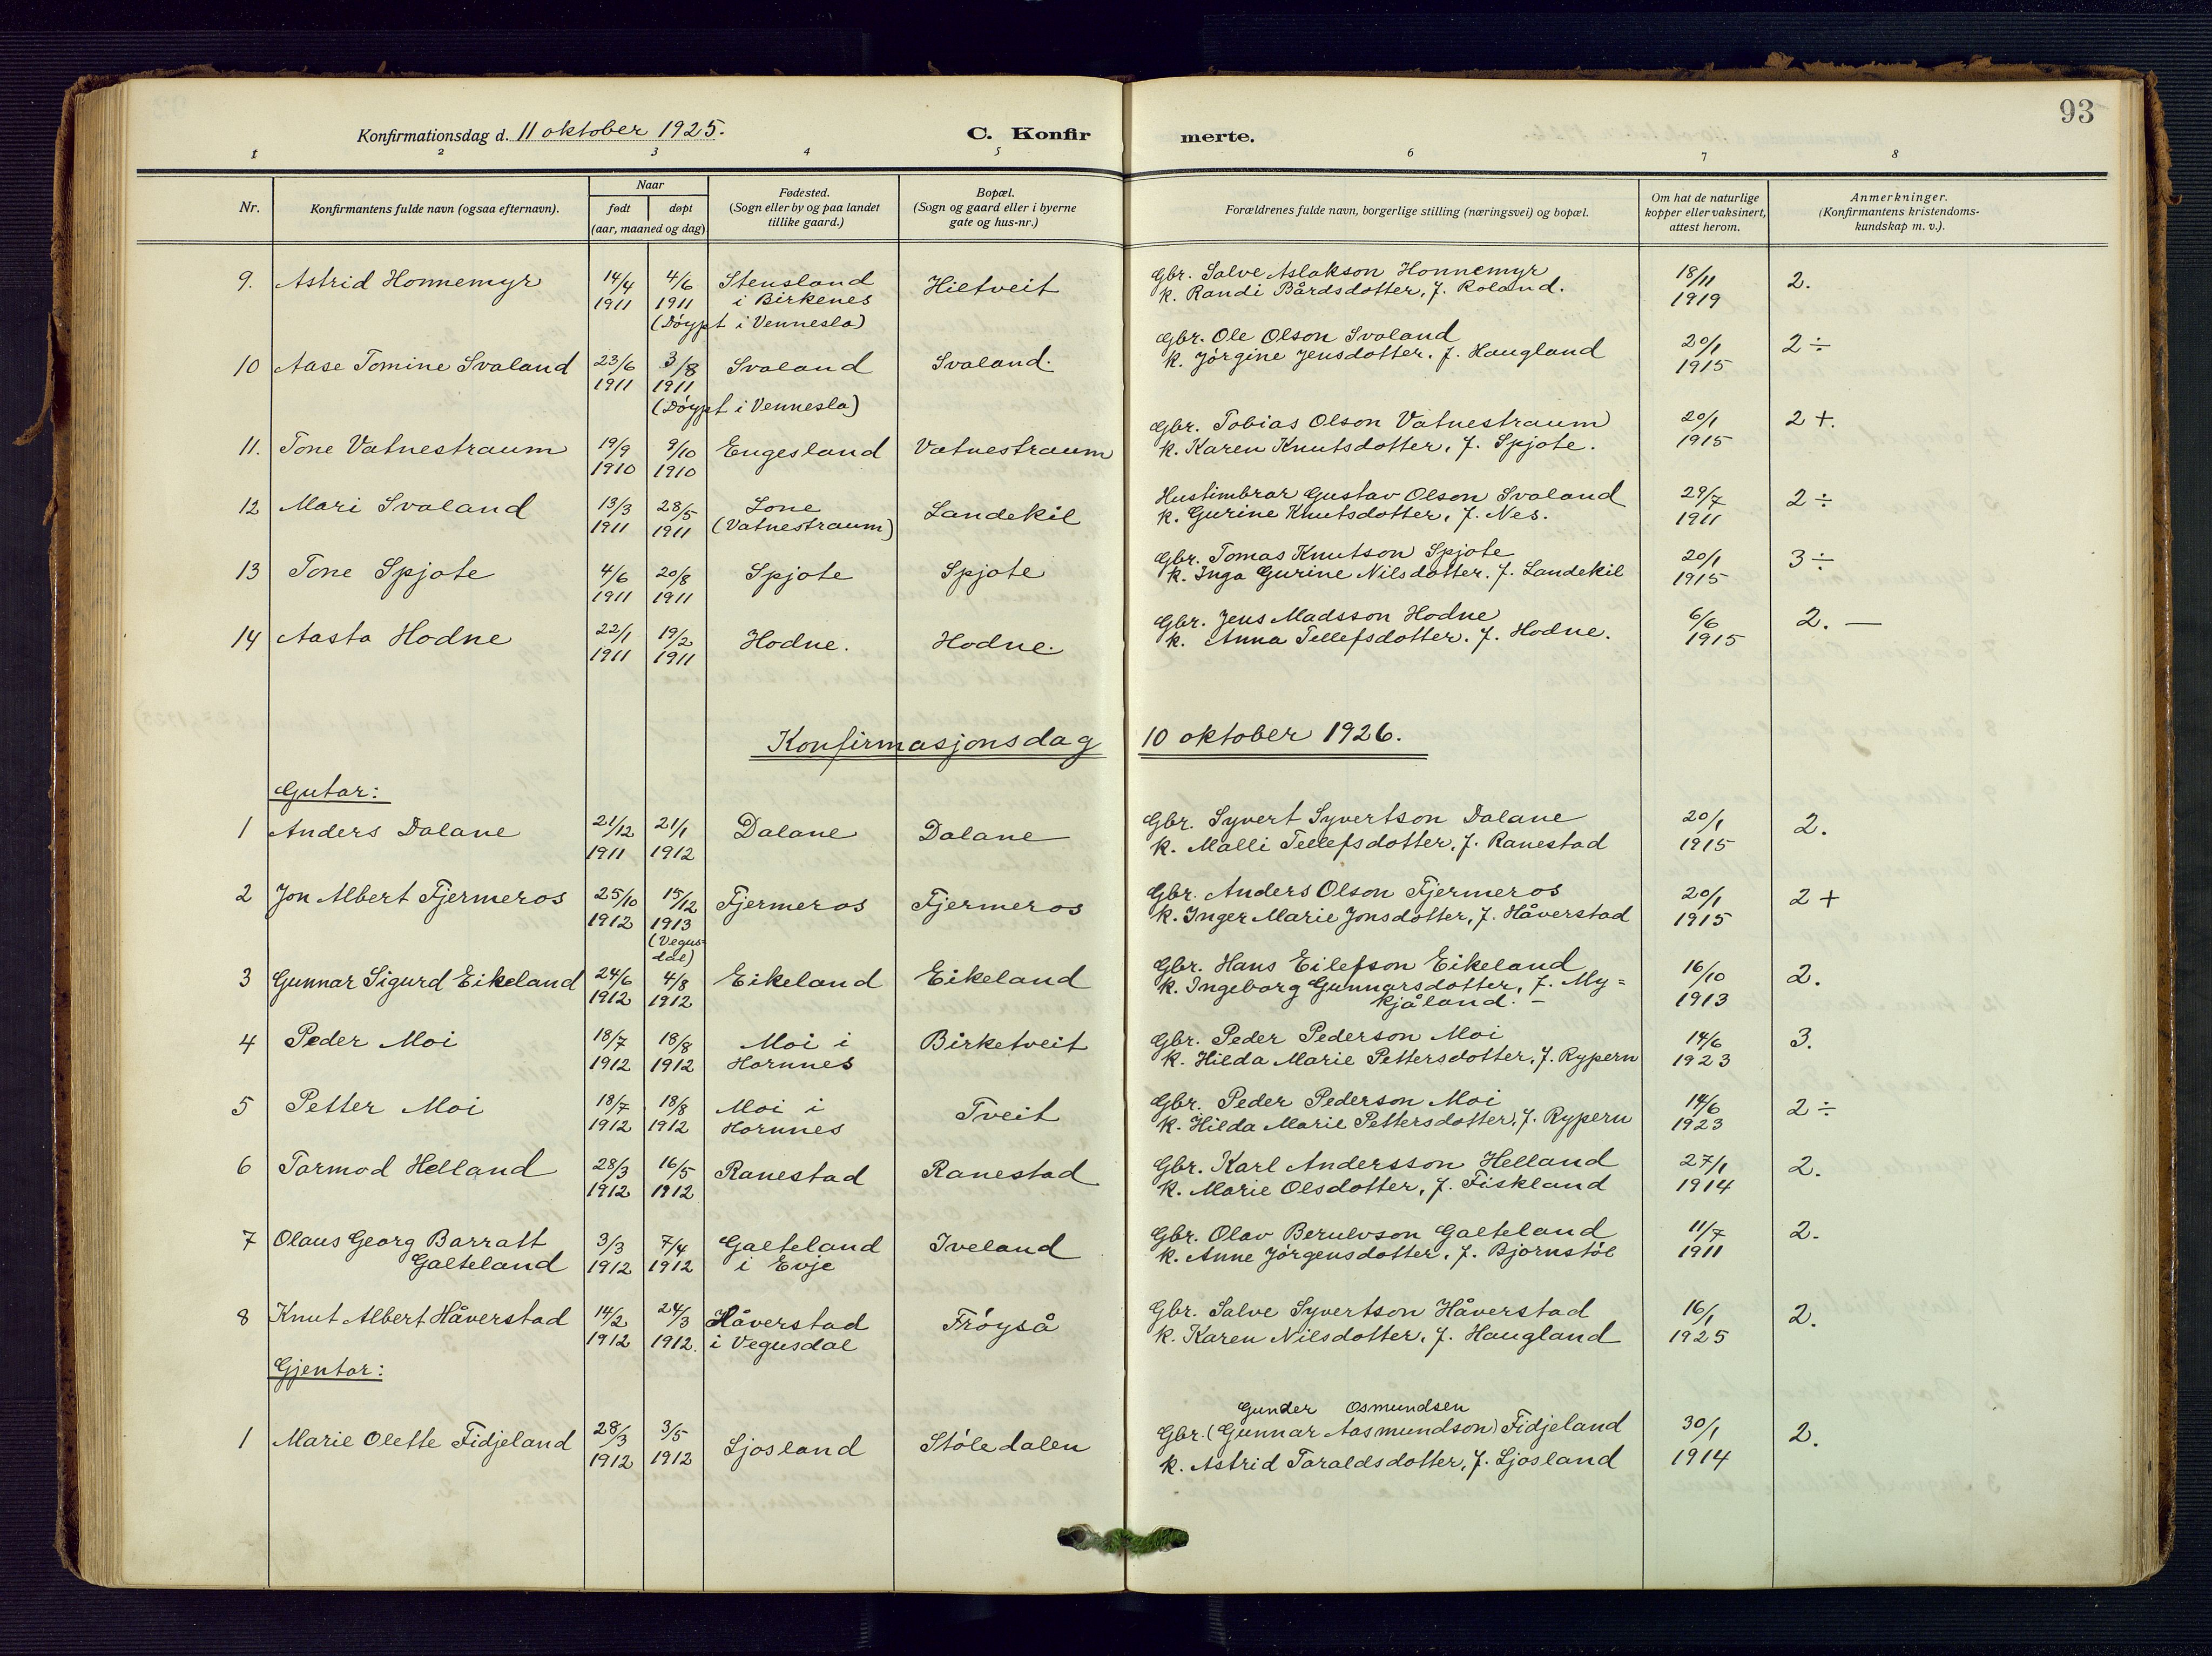 93
Konfirmationsdag d. 11 oktober 1925. C. Konfirmerte.
1 2 3 4 5 6 7 8
Nr. Konfirmantens fulde navn (ogsaa efternavn). Naar født døpt (aar, maaned og dag) Fødested. (Sogn eller by og paa landet tillike gaard.) Bopæl. (Sogn og gaard eller i byerne gate og hus-nr.) Forældrenes fulde navn, borgerlige stilling (næringsvei) og bopæl. Om hat de naturlige kopper eller vaksinert, attest herom. Anmerkninger. (Konfirmantens kristendoms-kundskap m. v.).
9. Astrid Honnemyr 14/4 1911 4/6 1911 Stensland i Birkenes Hietveit Gbr. Salve Aslakson Honnemyr 18/11 1919 2.
(Döypt i Vennesla) k. Randi Bårdsdotter, f. Roland.
10 Aase Tomine Svaland 23/6 1911 3/8 1911 Svaland Svaland. Gbr. Ole Olson Svaland 20/1 1915 2÷
(Döypt i Vennesla) k. Jörgine Jensdotter. f. Haugland
11. Tone Vatnestraum 19/9 1910 9/10 1910 Engesland Vatnestraum Gbr. Tobias Olson Vatnestraum 20/1 1915 2+.
k. Karen Knutsdotter, f. Spjote.
12 Mari Svaland 13/3 1911 28/5 1911 Lone (Vatnestraum) Landekil Hustimbrar Gustav Olson Svaland 29/7 1911 2÷
k. Gurine Knutsdotter, f. Nes.
13 Tone Spjote 4/6 1911 20/8 1911 Spjote Spjote Gbr. Tomas Knutson Spjote 20/1 1915 3÷
k. Inga Gurine Nilsdotter. f. Landekil
14 Aasta Hodne 22/1 1911 19/2 1911 Hodne. Hodne. Gbr. Jens Madsson Hodne 6/6 1915 2. —
k. Anna Tellefsdotter. f. Hodne.
Konfirmasjonsdag 10 oktober 1926.
Gutar:
1 Anders Dalane 21/12 1911 21/1 1912 Dalane Dalane Gbr. Syvert Syvertson Dalane 20/1 1915 2.
k. Malli Tellefsdotter, f. Ranestad
2 Jon Albert Fjermeros 25/10 1912 15/12 1913 (Vegusdal) Fjermeros Fjermeros Gbr. Anders Olson Fjermeros 20/1 1915 2+
k. Inger Marie Jonsdotter, f. Håverstad
3 Gunnar Sigurd Eikeland 24/6 1912 4/8 1912 Eikeland Eikeland Gbr. Hans Eilefson Eikeland 16/10 1913 2.
k. Ingeborg Gunnarsdotter, f. My=
kjåland. –
4 Peder Moi 18/7 1912 18/8 1912 Moi i Hornnes Birketveit Gbr. Peder Pederson Moi 14/6 1923 3.
k. Hilda Marie Pettersdotter, f. Rypern
5 Petter Moi 18/7 1912 18/8 1912 Moi i Hornnes Tveit Gbr. Peder Pederson Moi 14/6 1923 2÷
k. Hilda Marie Pettersdotter, f. Rypern
6 Tarmod Helland 28/3 1912 16/5 1912 Ranestad Ranestad Gbr. Karl Andersson Helland 27/1 1914 2.
k. Marie Olsdotter, f. Fiskland
7 Olaus Georg Barratt Galteland 3/3 1912 7/4 1912 Galteland i Evje Iveland Gbr. Olav Berulvson Galteland 11/7 1911 2.
k. Anne Jörgensdotter, f. Bjornstöl
8 Knut Albert Håverstad 14/2 1912 24/3 1912. Håverstad i Vegusdal Fröyså Gbr. Salve Syvertson Håverstad 16/1 1925 2.
k. Karen Nilsdotter, f. Haugland
Gjentar:
Gunder Osmundsen
1 Marie Olette Fidjeland 28/3 1912 3/5 1912 Ljosland Stöledalen Gbr. (Gunnar Aasmundson) Fidjeland 30/1 1914 2.
k. Astrid Taraldsdotter, f. Ljosland